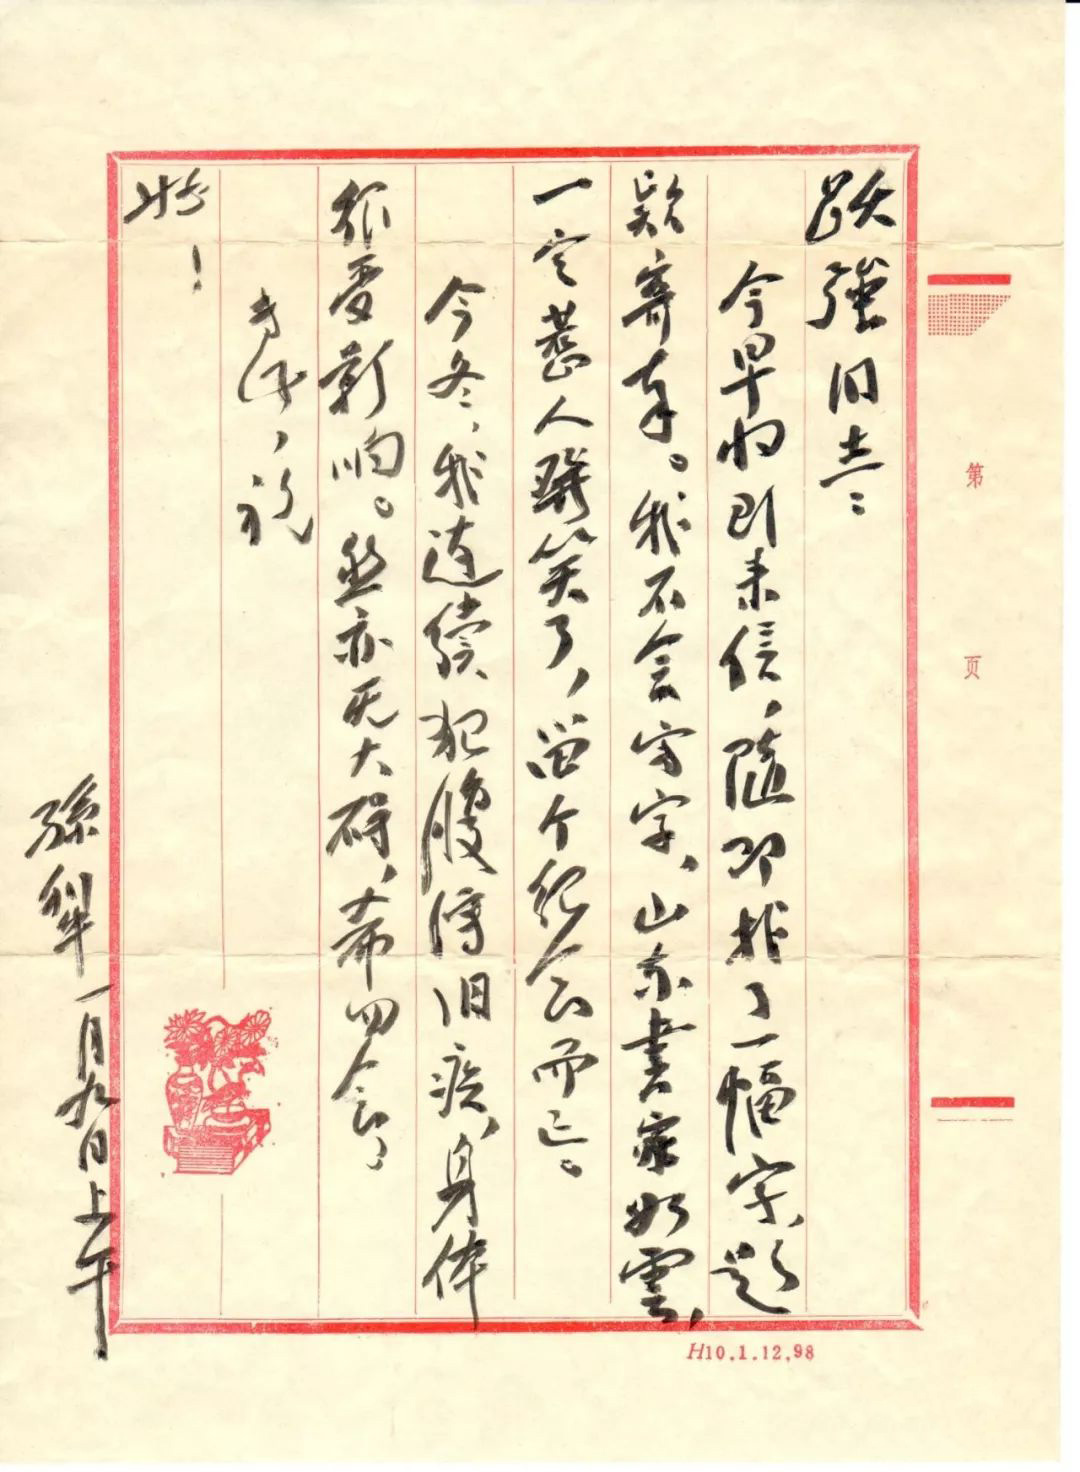 跃強同志：
今早收到来信，随即找了一幅字、题
款寄奉。我不会写字、山东書家如雲，
一定惹人笑了，留个纪念而已。
今冬，我连续犯腹泻旧疾、身体
很受影响。然亦无大碍，希勿念，
专此，祝
好！
孫犁 一月九日上午
第 页
H10.1.12.98